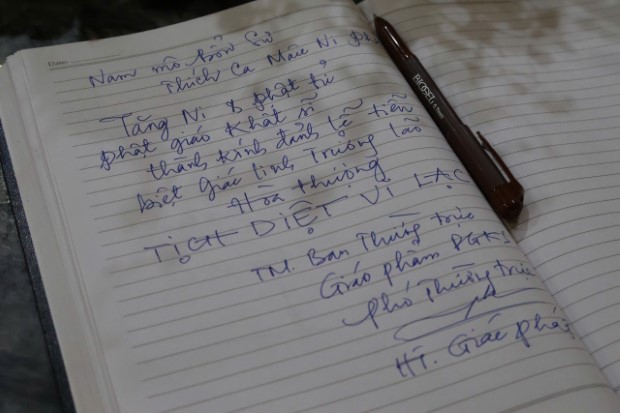 Date:
Nam mô bổn Sư
Thích Ca Mâu Ni
Tăng Ni & phật tử
phật giáo Khất sĩ
thành kính đảnh lễ tiễn
biệt giác linh Trưởng lão
Hòa thượng
TỊCH DIỆT VI LẠC
TM. Ban Thường trực
Giáo phẩm PGKS
phó Thường trực
HT. Giác pháp
PICASSO